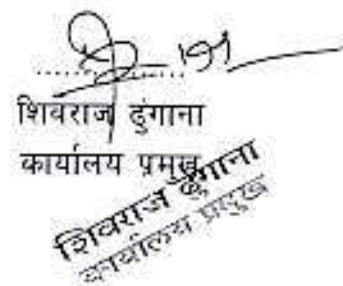 शिवराज ढुंगाना
कार्यालय प्रमुख
शिवराज ढुंगाना
कार्यालय प्रमुख